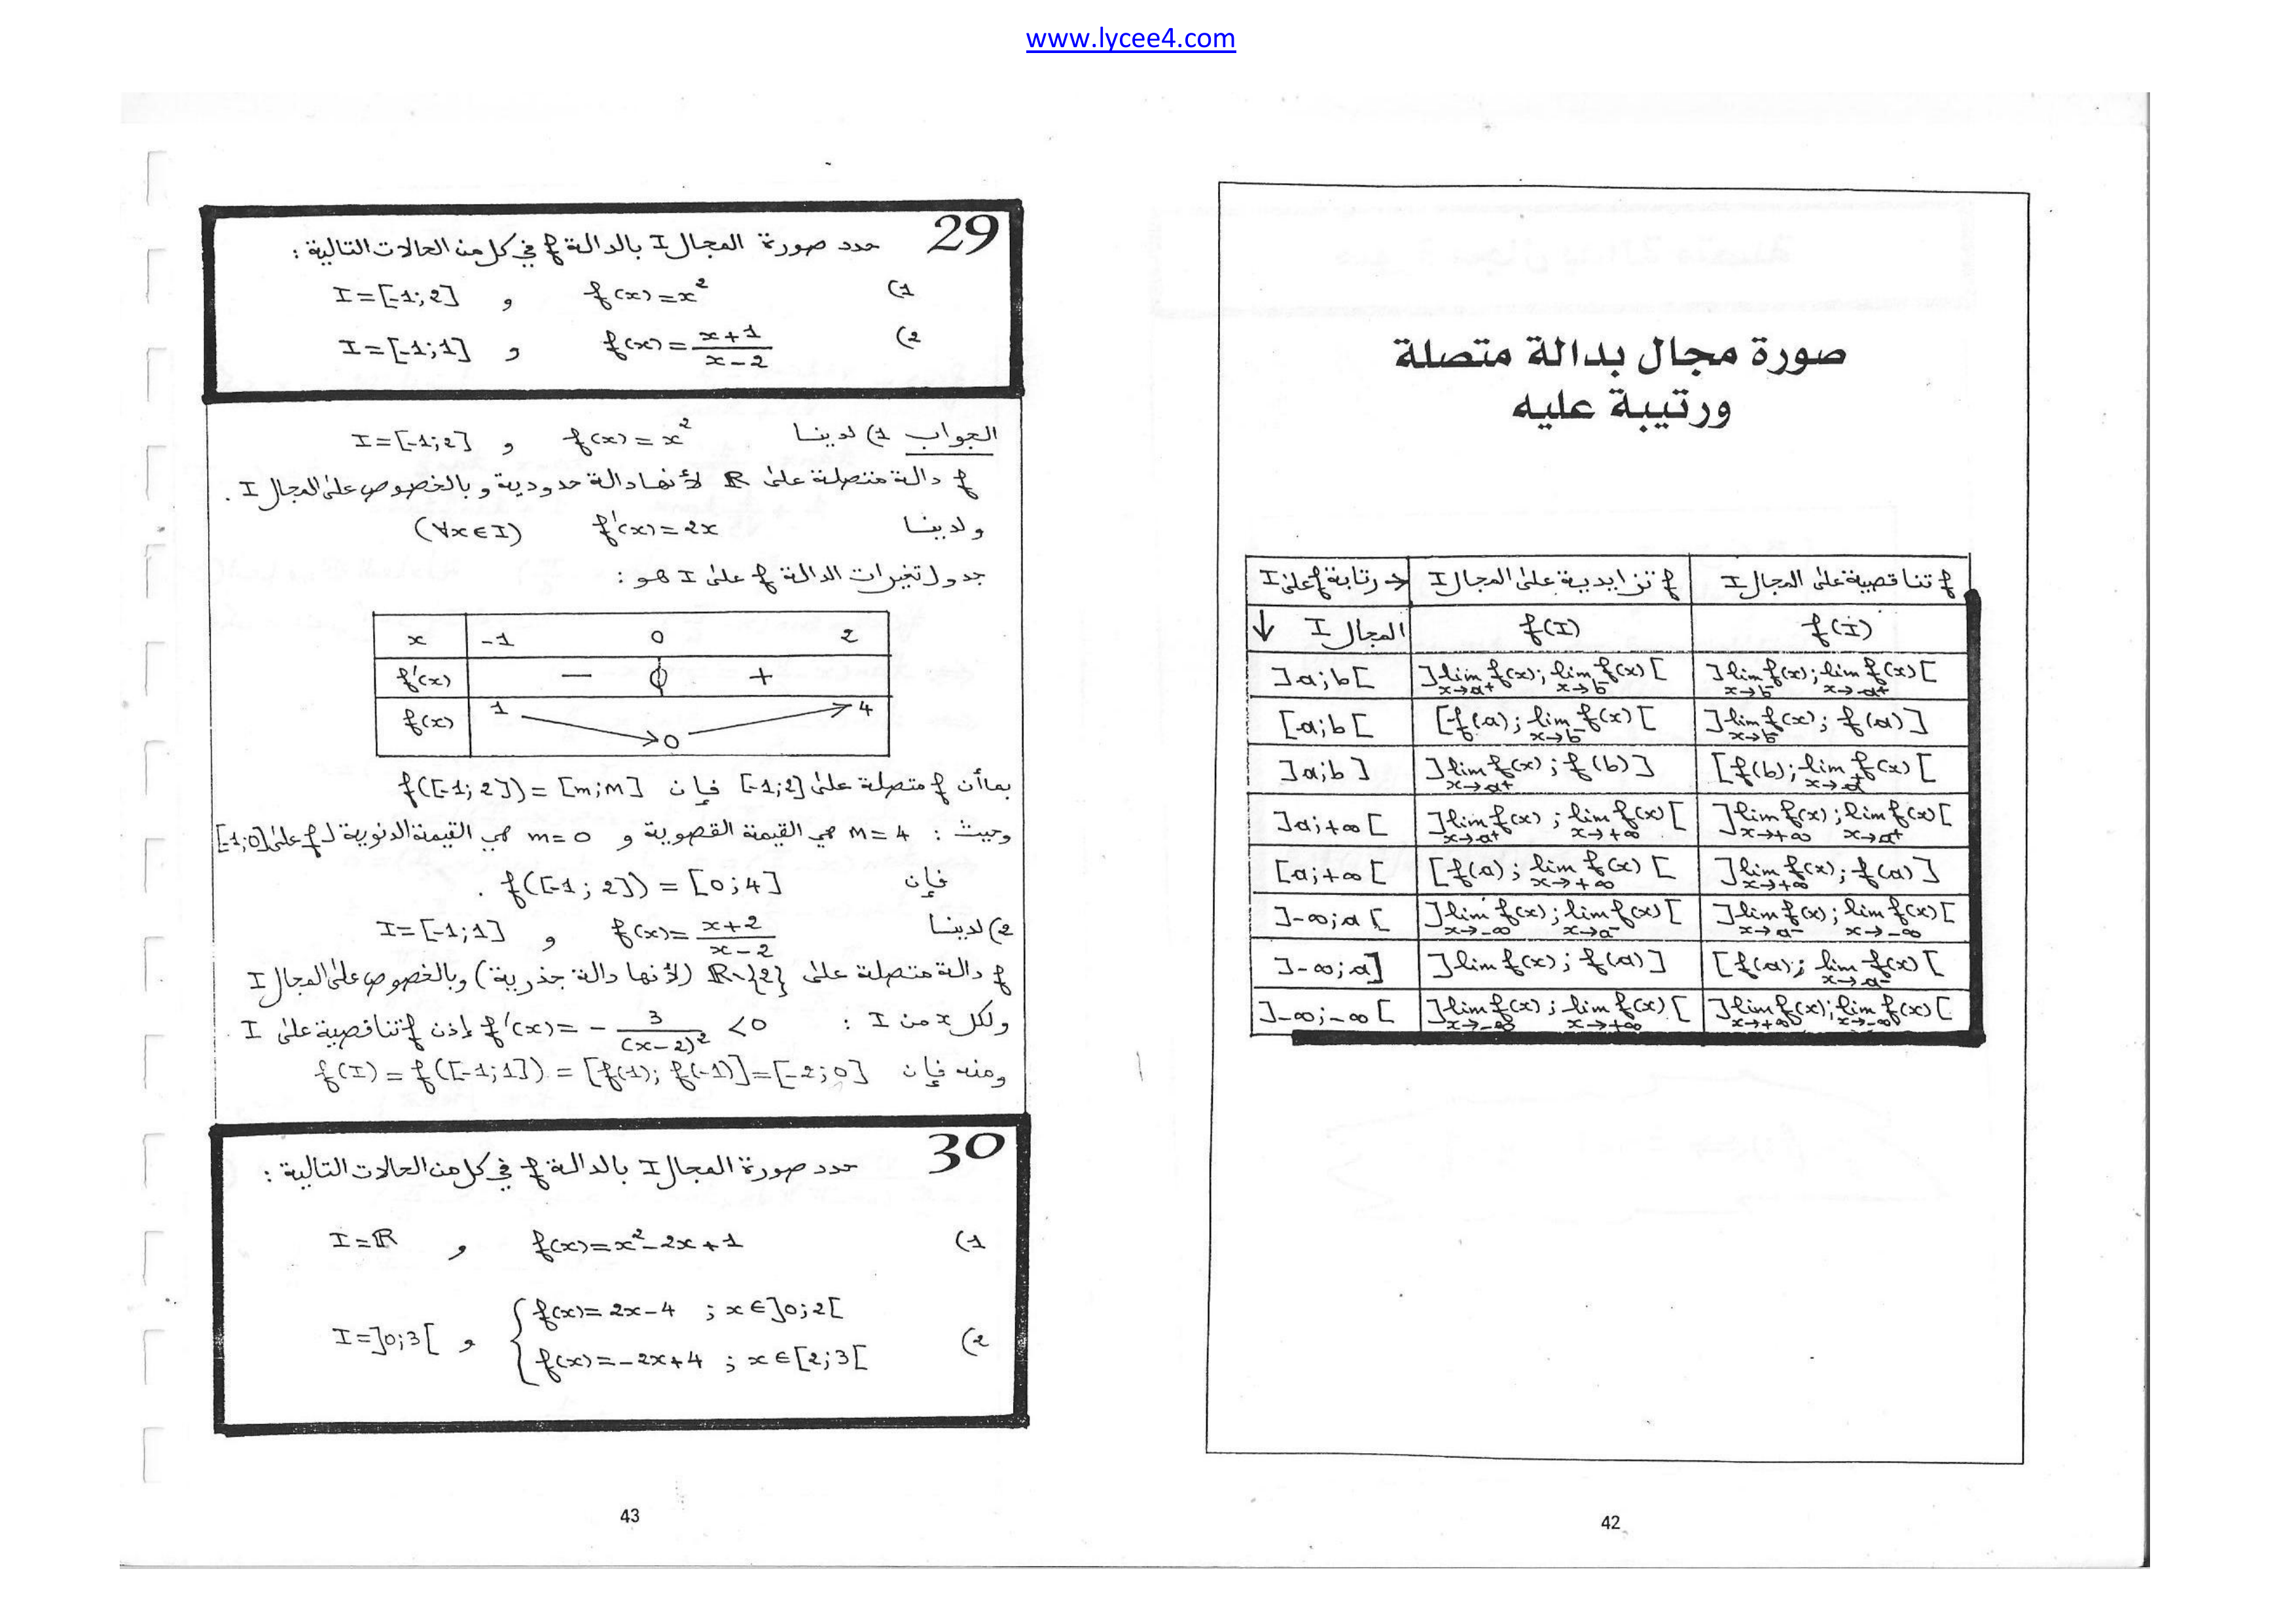 www.lycee4.com
صورة مجال بدالة متصلة
ورتيبة عليه
رتابة f على I → | f تزايدية على المجال I | f تناقصية على المجال I
المجال I ↓ | f(I) | f(I)
]a;b[ | ]lim f(x) x→a⁺ ; lim f(x) x→b⁻[ | ]lim f(x) x→b⁻ ; lim f(x) x→a⁺[
[a;b[ | [f(a) ; lim f(x) x→b⁻[ | ]lim f(x) x→b⁻ ; f(a)]
]a;b] | ]lim f(x) x→a⁺ ; f(b)] | [f(b) ; lim f(x) x→a⁺[
]a;+∞[ | ]lim f(x) x→a⁺ ; lim f(x) x→+∞[ | ]lim f(x) x→+∞ ; lim f(x) x→a⁺[
[a;+∞[ | [f(a) ; lim f(x) x→+∞[ | ]lim f(x) x→+∞ ; f(a)]
]-∞;a[ | ]lim f(x) x→-∞ ; lim f(x) x→a⁻[ | ]lim f(x) x→a⁻ ; lim f(x) x→-∞[
]-∞;a] | ]lim f(x) ; f(a)] | [f(a) ; lim f(x) x→a⁻[
]-∞;-∞[ | ]lim f(x) x→-∞ ; lim f(x) x→+∞[ | ]lim f(x) x→+∞ ; lim f(x) x→-∞[
42
29 حدد صورة المجال I بالدالة f في كل من الحالات التالية :
1) f(x)=x² و I=[-1;2]
2) f(x)=(x+1)/(x-2) و I=[-1;1]
الجواب 1) لدينا f(x)=x² و I=[-1;2]
f دالة متصلة على ℝ لأنها دالة حدودية وبالخصوص على المجال I .
ولدينا f'(x)=2x (∀x∈I)
جدول تغيرات الدالة f على I هو :
x | -1 0 2
f'(x) | - 0 +
f(x) | 1 0 4
بما أن f متصلة على [-1;2] فإن f([-1;2])=[m;M]
وحيث : M=4 هي القيمة القصوية و m=0 هي القيمة الدنوية لـ f على [-1;0]
فإن f([-1;2])=[0;4] .
2) لدينا f(x)=(x+2)/(x-2) و I=[-1;1]
f دالة متصلة على ℝ\{2} (لأنها دالة جذرية) وبالخصوص على المجال I
ولكل x من I : f'(x)=-3/(x-2)² <0 إذن f تناقصية على I
ومنه فإن f(I)=f([-1;1])=[f(1);f(-1)]=[-2;0]
30 حدد صورة المجال I بالدالة f في كل من الحالات التالية :
1) f(x)=x²-2x+1 و I=ℝ
2) { f(x)=2x-4 ; x∈]0;2[
f(x)=-2x+4 ; x∈[2;3[ و I=]0;3[
43